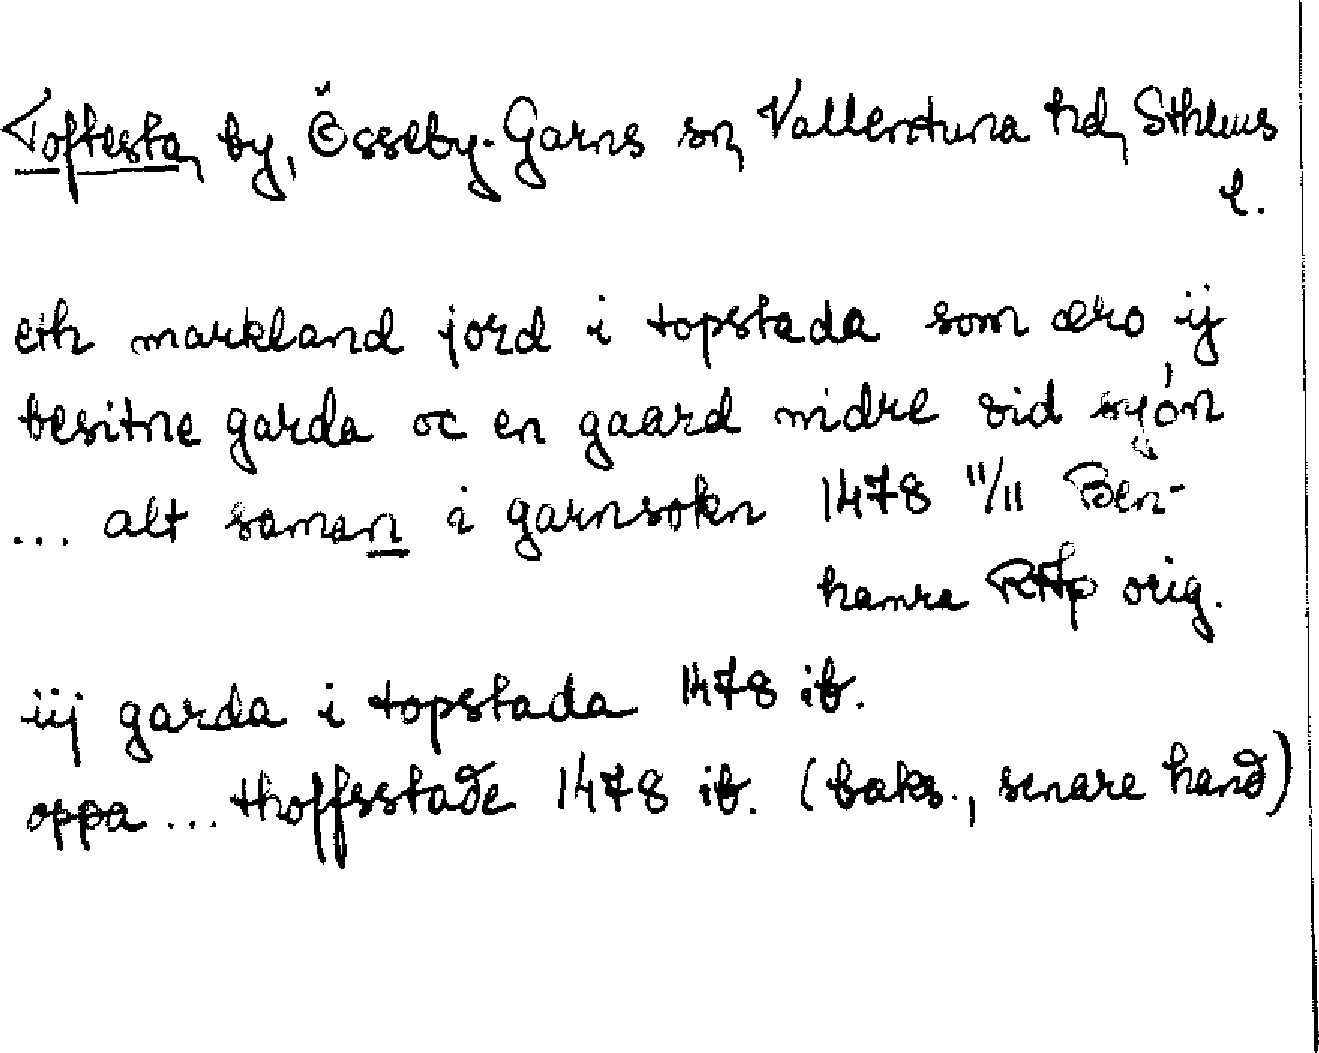 Toftesta, by, Össeby-Garns sn, Vallentuna hd, Sthlms
l.
eth markland jord i topstada som æro ij
besitne garda oc en gaard nidre vid syön
... alt saman i garnsokn 1478 11/11 Ben-
hamra RAp orig.
iij garda i topstada 1478 ib.
oppa ... thoffsstade 1478 ib. (baks., senare hand)